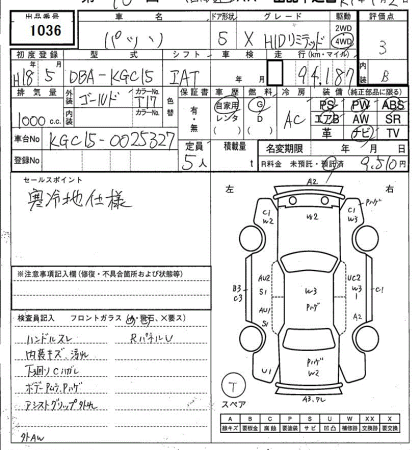 出品番号 車名 ドア形状 グレード 駆動 評価点
1036 (パッソ) 5 X HIDリミテッド 2WD 4WD 3
初度登録 型式 シフト 車検 走行(km・マイル)
H18 5 DBA-KGC15 IAT 年 月 94,187 B
排気量 外装 ゴールド カラーNo. T17 色替 保証書 車歴 燃料 冷房 装備(純正部品に限る)
1000 c.c. 内装 カラーNo. 有・無 自家用 G AC PS PW ABS
レンタ D エアB AW SR
革 ナビ TV
車台No KGC15-0025327 定員 積載量 名変期限 年 月 日
登録No 5人 t R料金 未預託・預託済 9,510円
セールスポイント
寒冷地仕様
左 右
A2
W2
C1
W2
Pハゲ
C1
W3
B3
C3
AU2
S1
AU1
S1
W3
Pハゲ
UC2
W3
A2
C1
※注意事項記入欄(修復・不具合箇所および状態等)
検査員記入 フロントガラス(飛石、X要ス)
ハンドルスレ RパネルU
内装キズ、汚れ
下廻りCハガレ
ボデーAW、Pハゲ
アシストグリップ外れ
外AW
U1
Pハゲ
W2
A3.
T
スペア
A B C P S U W X XX
線キズ 要板金 腐蝕 要塗装 サビ 凹凸 補修跡 交換跡 要交換